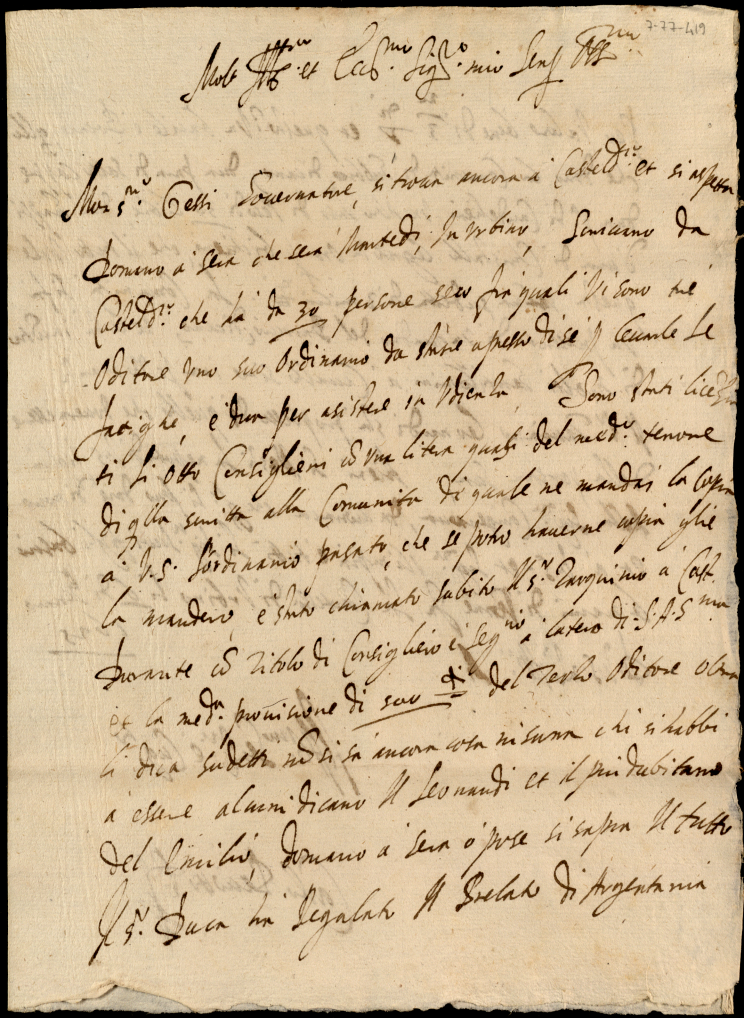 7-77-419
Molt Ill.re et Ecc.mo Sig.r mio Oss.mo
Mons.r Gessi Governatore, si trova ancora à Casteld.te et si aspetta
domano à sera che sera Martedi, in Urbino, scrivano da
Casteld.te che hà da 30 persone seco frà quali vi sono tré
Oditore uno suo ordinario da stare apresso di se p levarle le
fatighe, e dua per asistere in Udienza, Sono stati licentia
ti li otto Consiglieri cō una litera quasi del med.o tenore
di qlla scritta alla Comunita di quale ne mandai la copia
à V.S. l'ordinario pasato, che se potrò haverne copia glie
la manderò, e stato chiamato subito Il s.r Tarquinio à Cast.
durante cō titolo di Consigliero e seg.rio a latere di S.A.S.ma
et la med.a provisione di scuo del terzo Oditore oltra
li dica sudetti nō si sà ancora cosa nisuna chi si habbi
à essere alcuni dicano Il Leonardi et il piu dubitano
del Emilio, domano à sera ò pose si sapra Il tutto
Il s.r Duca hà Regalato Il Prelato di Argentaria